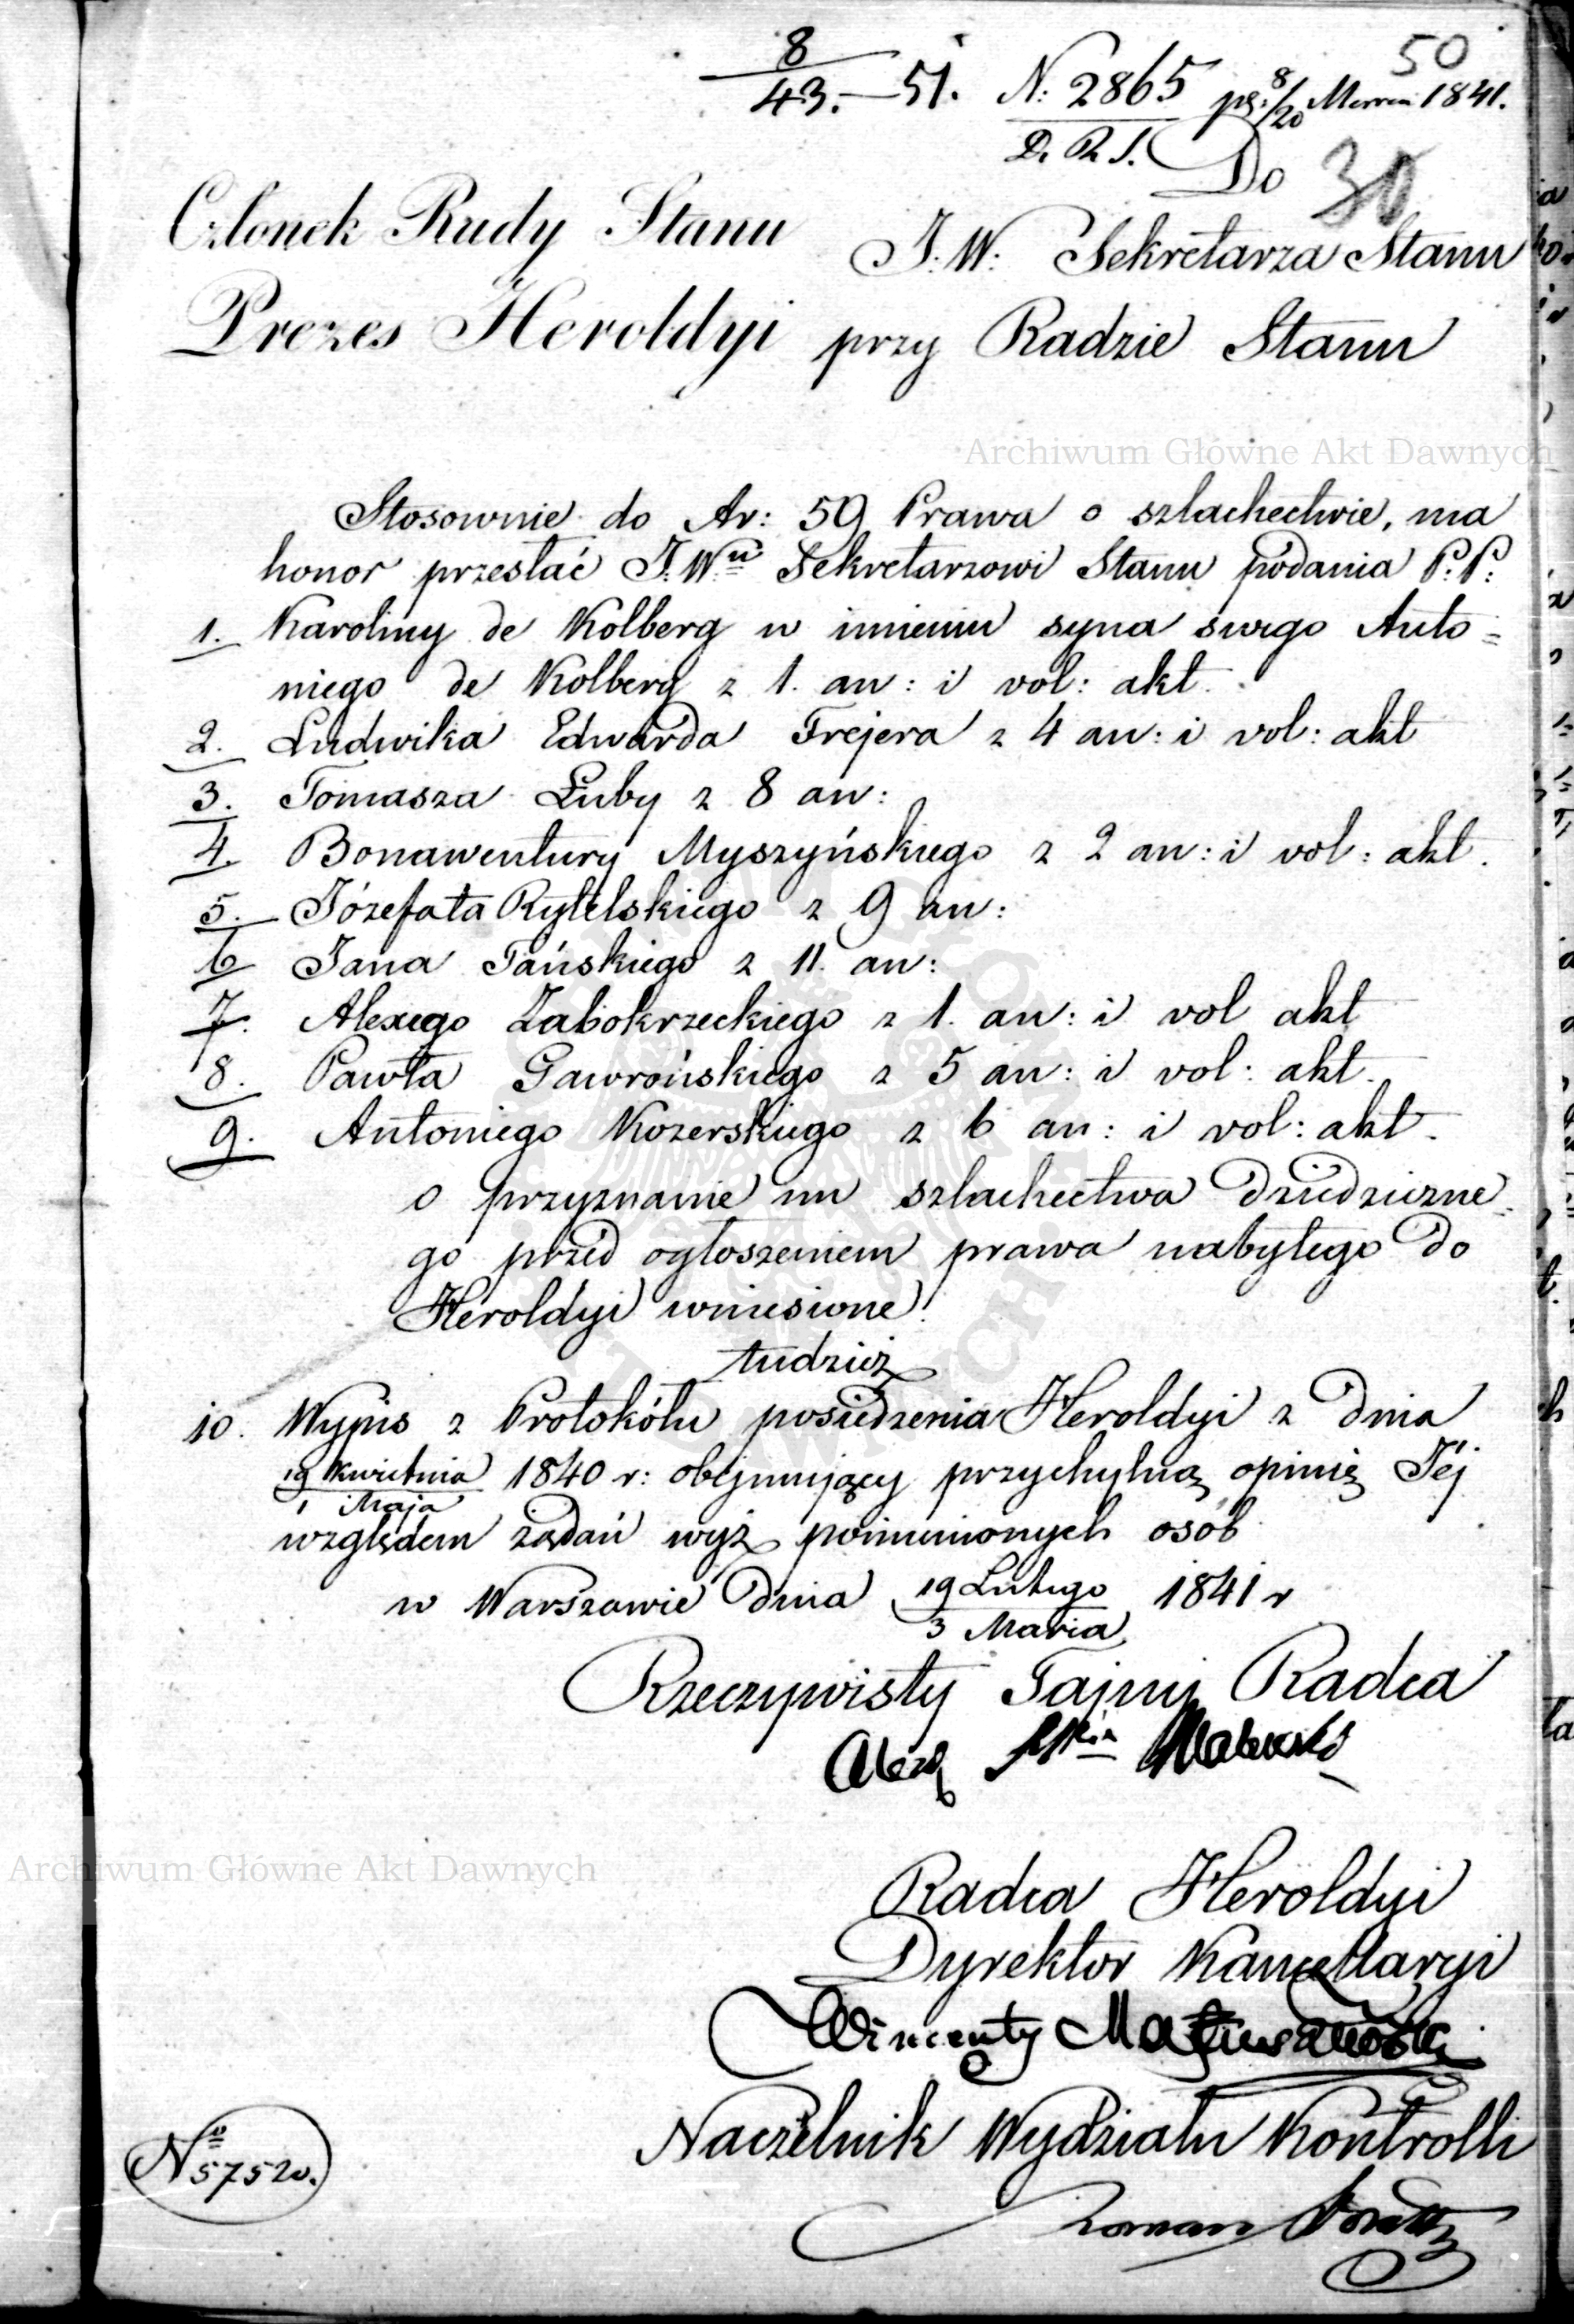 50
8/43. — 51. N: 2865 8/20 1841.
D. R. S.
Do
30
Członek Rady Stanu
J: W: Sekretarza Stanu
Prezes Heroldyi
przy Radzie Stanu
Archiwum Główne Akt Dawnych
Stosownie do Ar: 59 Prawa o szlachectwie, ma
honor przesłać J: Wu Sekretarzowi Stanu podania P: P:
1. Karoliny de Kolberg w imieniu syna swego Anto=
niego de Kolberg z 1. an: i vol: akt.
2. Ludwika Edwarda Frejera z 4 an: i vol: akt
3. Tomasza Łuby z 8 an:
4. Bonawentury Myszyńskiego z 2 an: i vol: akt.
5. Józefata Rytelskiego z 9 an:
6 Jana Tańskiego z 11. an:
7. Alexego Zabokrzeckiego z 1. an: i vol akt
8. Pawła Gawrońskiego z 5 an: i vol: akt.
9. Antoniego Kozerskiego z 6 an: i vol: akt.
o przyznanie im szlachectwa dziedziczne=
go przed ogłoszeniem prawa nabytego do
Heroldyi wniesione.
tudzież
10. Wypis z Protokółu posiedzenia Heroldyi z dnia
19 Kwietnia / 1 Maja 1840 r: obejmujący przychylną opinię Jéj
względem żądań wyż pomienionych osób
w Warszawie dnia 19 Lutego / 3 Marca 1841 r
Rzeczywisty Tajny Radca
Archiwum Główne Akt Dawnych
Radca Heroldyi
Dyrektor Kancellaryi
Wincenty Matuszewski
Naczelnik Wydziału Kontrolli
No 57520.
Roman